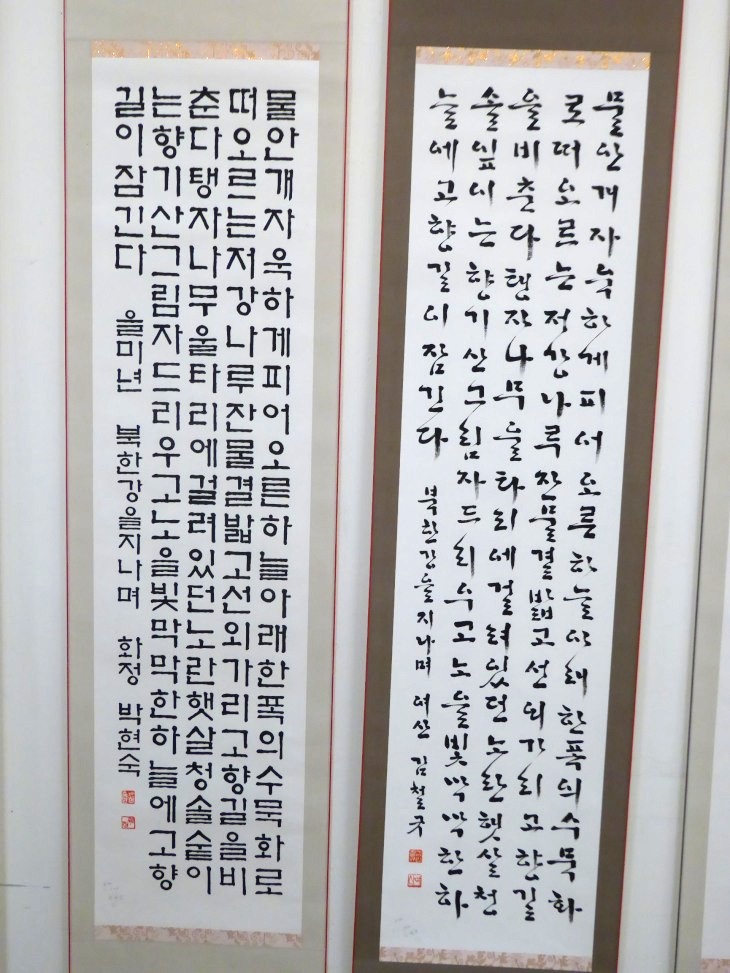 물안개자욱하게피어오른하늘아래한폭의수묵화로
떠오르는저강나루잔물결밟고선외가리고향길을비
춘다탱자나무울타리에걸려있던노란햇살청솔숲이
는향기산그림자드리우고노을빛막막한하늘에고향
길이잠긴다 을미년 북한강을지나며 화정 박현숙
물안개자욱하게피어오른하늘아래한폭의수묵화
로떠오르는저강나루잔물결밟고선외가리고향길
을비춘다탱자나무울타리에걸려있던노란햇살청
솔잎이는향기산그림자드리우고노을빛막막한하
늘에고향길이잠긴다 북한강을지나며 여산 김철구